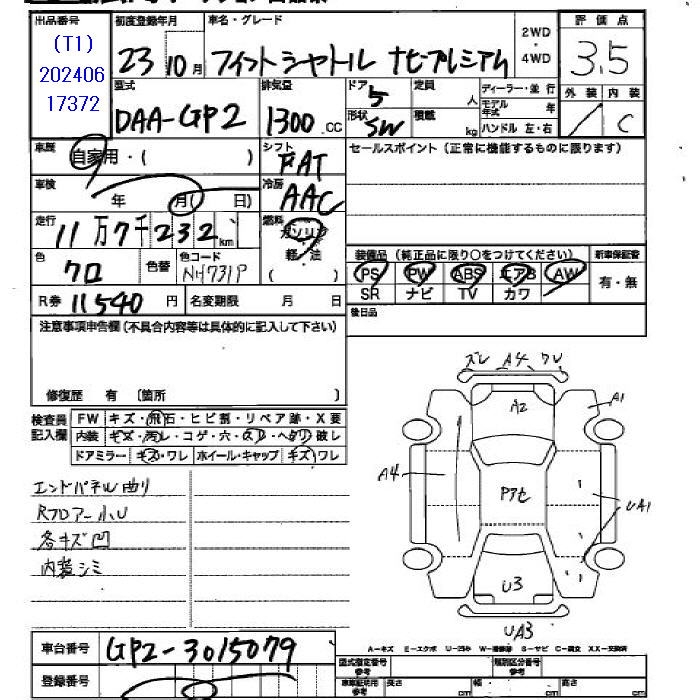 出品番号 初度登録年月 車名・グレード 2WD・4WD 評価点
(T1)
202406
17372
23 10月 フィットシャトル ナビプレミアム 3.5
型式 排気量 ドア 定員 ディーラー・並行 外装 内装
DAA-GP2 1300.CC 5 人 モデル年式 年 C
形状 SW 積載 kg ハンドル 左・右
車歴 自家用・( ) シフト FAT セールスポイント(正常に機能するものに限ります)
車検 年 月( 日) 冷房 AAC
走行 11万7千232km 燃料 ガソリン 軽・油 ( )
色 クロ 色替 色コード NH731P
装備品(純正品に限り○をつけてください) 新車保証書
PS PW ABS エアB AW 有・無
SR ナビ TV カワ
R券 11540円 名変期限 月 日 後日品
注意事項申告欄(不具合内容等は具体的に記入して下さい)
修復歴 有 〔箇所 〕
検査員記入欄 FW キズ・飛石・ヒビ割・リペア跡・X要
内装 キズ・汚レ・コゲ・穴・スレ・ヘタリ・破レ
ドアミラー キズ・ワレ ホイール・キャップ キズ・ワレ
エンドパネル曲り
Rフロアー小U
各キズ凹
内装シミ
ズレ A4 ワレ
A2
A1
A4
Pアセ
UA1
U3
UA3
車台番号 GP2-3015079
登録番号
A-キズ E-エクボ U-凹み W-補修跡 S-サビ C-腐食 XX-交換済
型式指定番号 参考 類別区分番号 参考
車庫証明用 参考 長さ cm 幅 cm 高さ cm